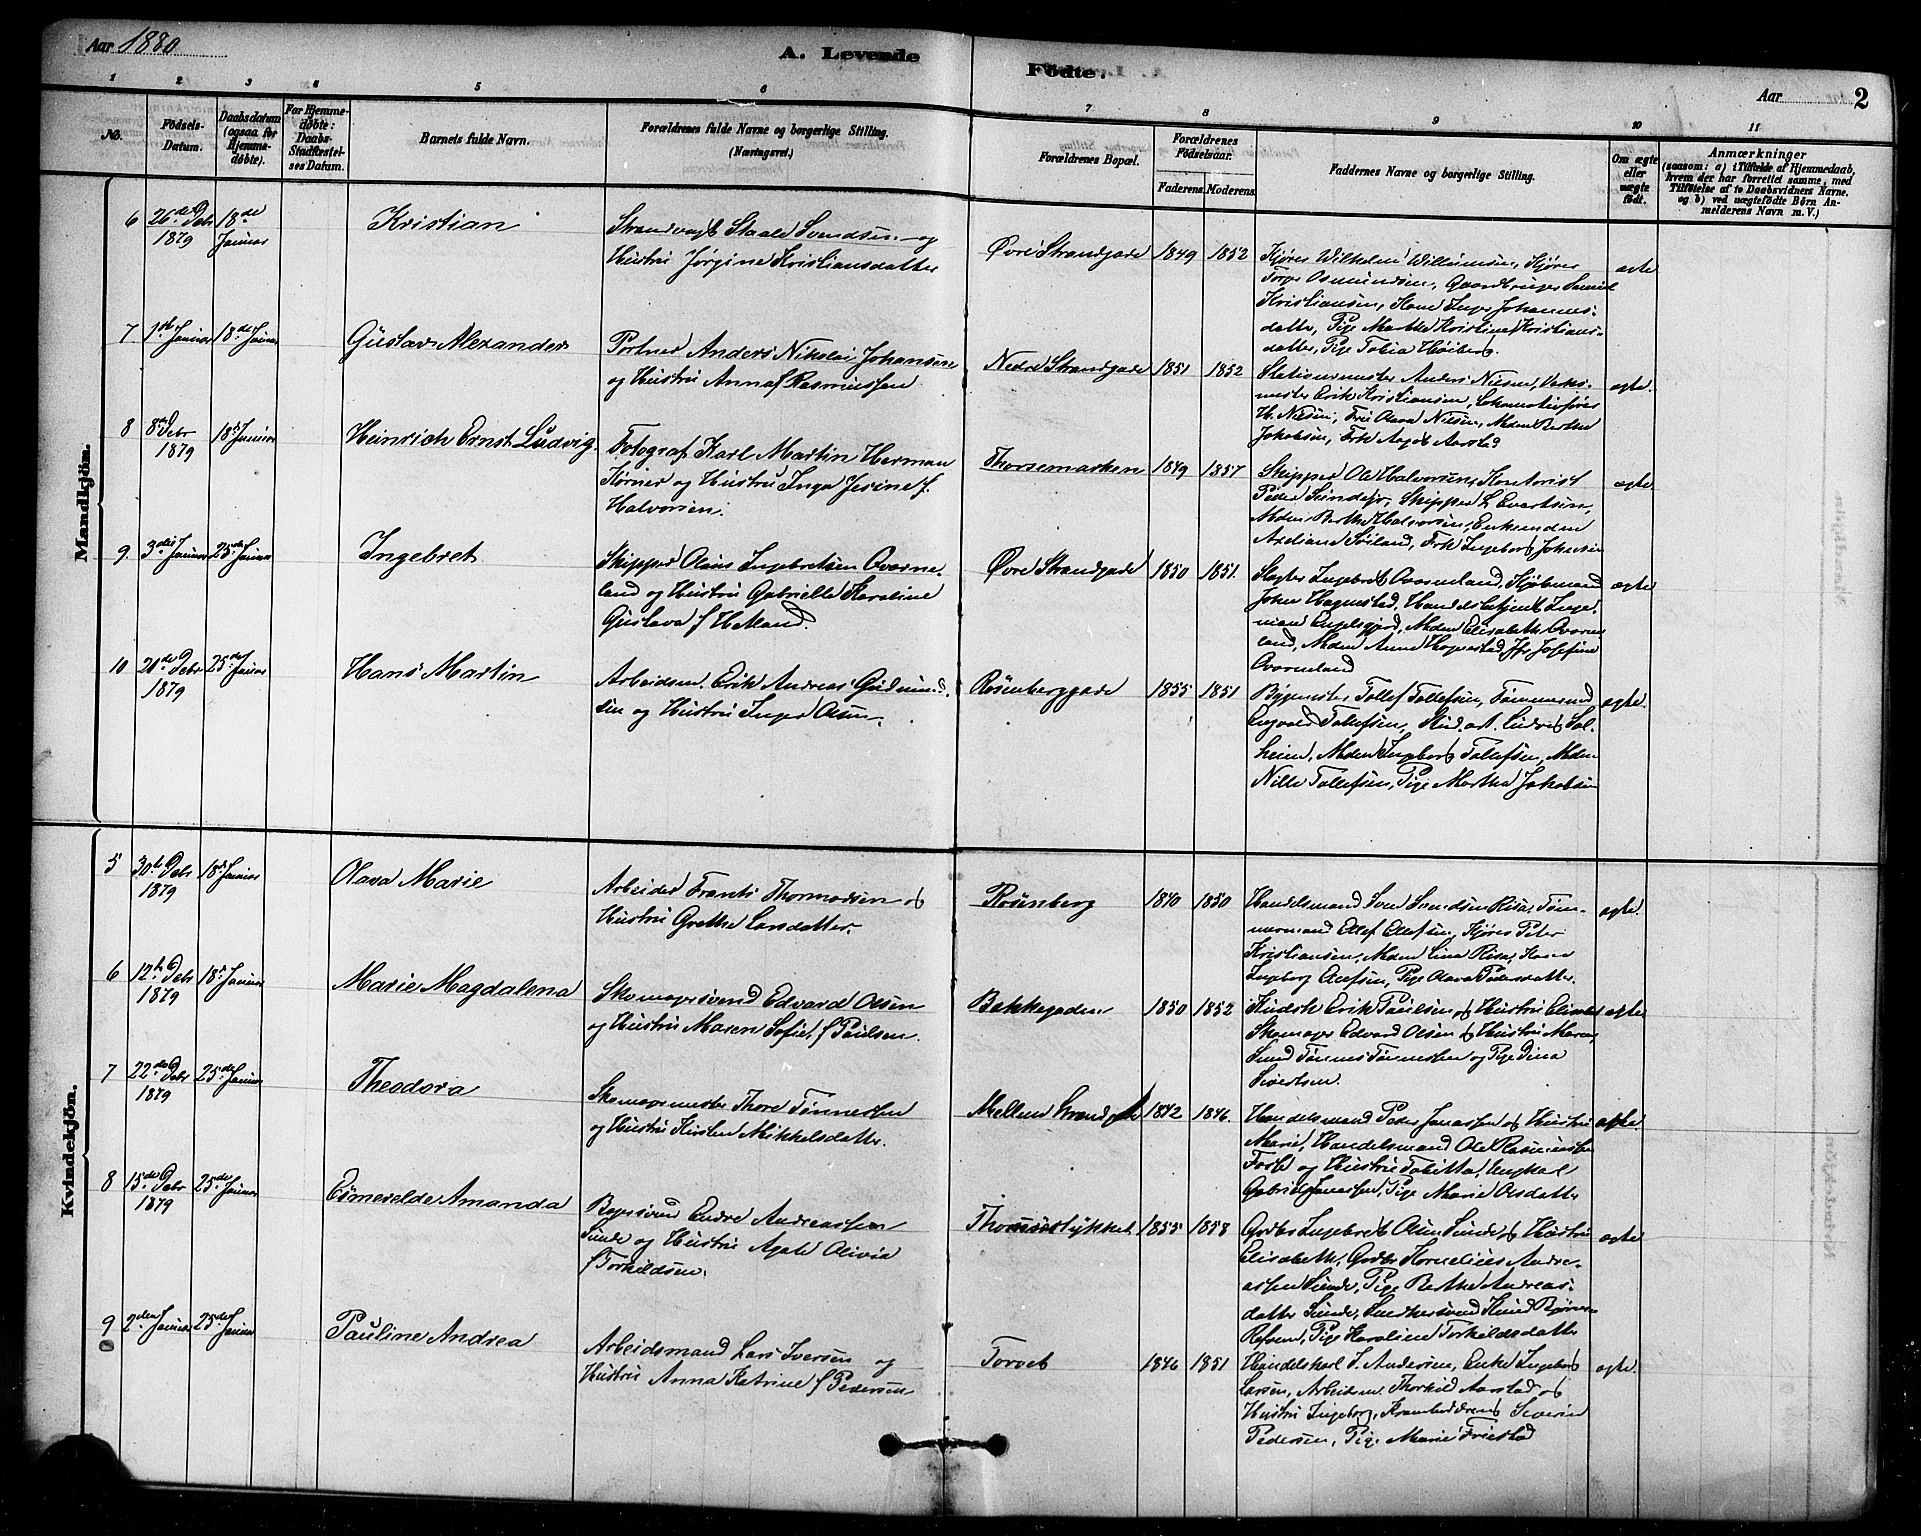 Aar 1880
A. Levende
Födte.
Aar 2
1 2 3 4 5 6 7 8 9 10 11
No.
Födsels-
Datum.
Daabsdatum
(ogsaa for
Hjemme-
døbte).
For Hjemme-
døbte:
Daabs-
Stadfæstel-
ses Datum.
Barnets fulde Navn.
Forældrenes fulde Navne og borgerlige Stilling.
(Næringsvei.)
Forældrenes Bopæl.
Forældrenes
Fødselsaar.
Faderens. Moderens.
Faddernes Navne og borgerlige Stilling.
Om ægte
eller
uægte
født.
Anmærkninger
(saasom: a) i Tilfælde af Hjemmedaab,
hvem der har forrettet samme, med
Tilføielse af to Daabsvidners Navne.
og b) ved uægtefødte Børn An-
melderens Navn m. V.)
Mandkjön.
6 26de Debr 1879
18de Januar
Kristian
Strandvagt Staale Svendsen og
Hustru Jørgine Kristiansdatter
Øvre Strandgade 1849 1852
Kjører Wilhelm Willumsen, Kjører
Torger Osmundsen, Gaardbruger
Kristiansen, Kone Inger Johannes-
datter, Pige Marthe Kristine Kristians-
datter, Pige Tobia Høiberg.
ægte
7 1ste Januar 18de Januar
Gustav Alexander
Portner Anders Nikolai Johansen
og Hustru Anna f Rasmussen
Nedre Strandgade 1851 1852
Stationsmester Anders Nielsen, Verks-
mester Erik Kristiansen, Lokomotivfører
H. Nielsen, Fru Olava Nielsen, Mdm Berthe
Jakobsen, Frk Aarstad
ægte.
8 8de Debr 1879
18de Januar
Heinrich Ernst Ludvig.
Fotograf Karl Martin Herman
Körner og Hustru Inga Jesine f.
Halvorsen.
Thorsemarken 1849 1857
Skipper Ole Halvorsen, Kontorist
Peder, Skipper L Evertsen,
Mdm Berthe Halvorsen, Enkemadm
Axeliane Søiland, Frk Ingeborg Johnsen
ægte
9. 3die Januar 25de Januar
Ingebret
Skipper Olaus Ingebretsen Ovorne-
land og Hustru Gabrielle Karoline
Gustava f Helland.
Øvre Strandgade 1850 1851.
Slagter Ingebret Ovorneland, Kjøbmand
John Hognestad, Handelsbetjent Inge-
man Engelsgjerd, Mdm Elisabeth Ovorne-
land, Mdm Anne Hognestad, Jfr Josefine
Ovorneland
ægte
10 20de Debr 1879
25de Januar
Hans Martin
Arbeidsm. Erik Andreas Gudmund-
sen og Hustru Inger Olsen.
Rosenberggade 1855 1851
Bygmester Tollef Tollefsen, Tømmermd
Engvald Tollefsen, Stud. art. Ludvig Sol-
heim, Mdm Ingeborg Tollefsen, Mdm
Nille Tollefsen, Pige Martha Jakobsen
ægte.
Kvindekjön.
5 30te Debr 1879
18de Januar
Olava Marie
Arbeider Frants Thormodsen og
Hustru Grethe Larsdatter.
Rosenberg 1840 1850
Handelsmand Sven Svendsen Risa, Tøm-
mermand Ollef Olefsen, Kjører Peter
Kristiansen, Mdm Lina Risa, Kone
Ingeborg Olefsen, Pige Olava Pedersdatter.
ægte.
6 12te Debr 1879
18de Januar
Marie Magdalena
Skomagersvend Edvard Olsen
og Hustru Maren Sofie f Paulsen.
Bakkegaden 1850 1852
Kudsk Erik Paulsen og Hustru Elisabet
Skomager Edvard Olsen og Hustru Maren,
Svend Tønnes Tønnesen og Pige Dina
Sivertsen.
ægte
7 22de Debr 1879
25de Januar
Theodora
Skomagermester Thore Tönnessen
og Hustru Kirsten Mikkelsdatter.
Mellem Strandgade 1842 1846.
Handelsmand Peder Jonassen og Hustru
Marie, Handelsmand Ole Rasmussen
Foss og Hustru Tabitta, Ungkarl
Gabriel Jonassen, Pige Marie Olsdatter
ægte.
8 15de Debr 1879
25de Januar
Esmerelde Amanda
Bagersvend Endre Andreassen
Sunde og Hustru Agate Olivia
f Torkildsen.
Thomasstykket 1855 1858
Gdbr Ingebret Olsen Sunde og Hustru
Elisabeth, Gdbr Kornelius Andre-
assen Sunde, Pige Berthe Andreas-
datter Sunde, Snedkersvend Knud Bjørnsen
Refsum, Pige Karoline Torkildsdatter
ægte
9 2den Januar 25de Januar
Pauline Andrea
Arbeidsmand Lars Iversen og
Hustru Anna Katrine f Pedersen
Torvet 1846 1851
Handelskarl J. Andersen, Enke Ingeborg
Larsen, Arbeidsm. Thorkild Aarstad og
Hustru Ingeborg, Severin
Pedersen, Pige Marie Friestad
ægte.